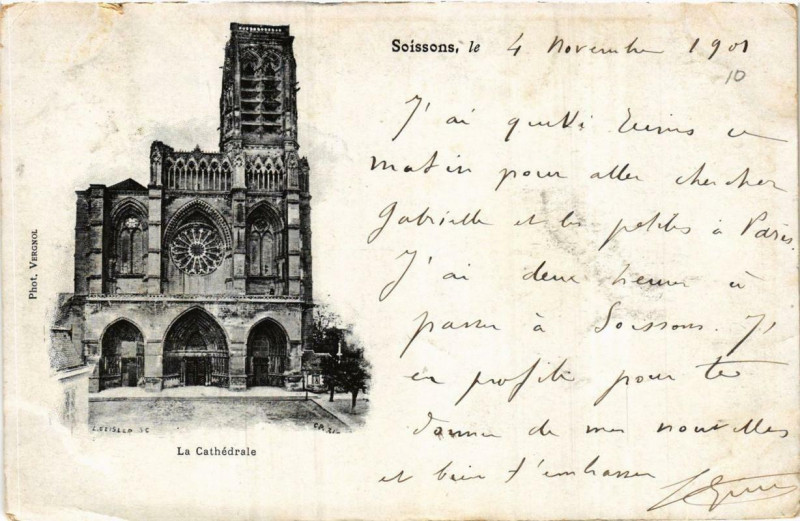 Soissons, le 4 Novembre 1901
10
J'ai quitté Reims ce
matin pour aller chercher
Gabrielle et les petites à Paris.
J'ai deux heures à
passer à Soissons. J'
en profite pour te
donner de mes nouvelles
et bien t'embrasser
Phot. Vergnol
La Cathédrale